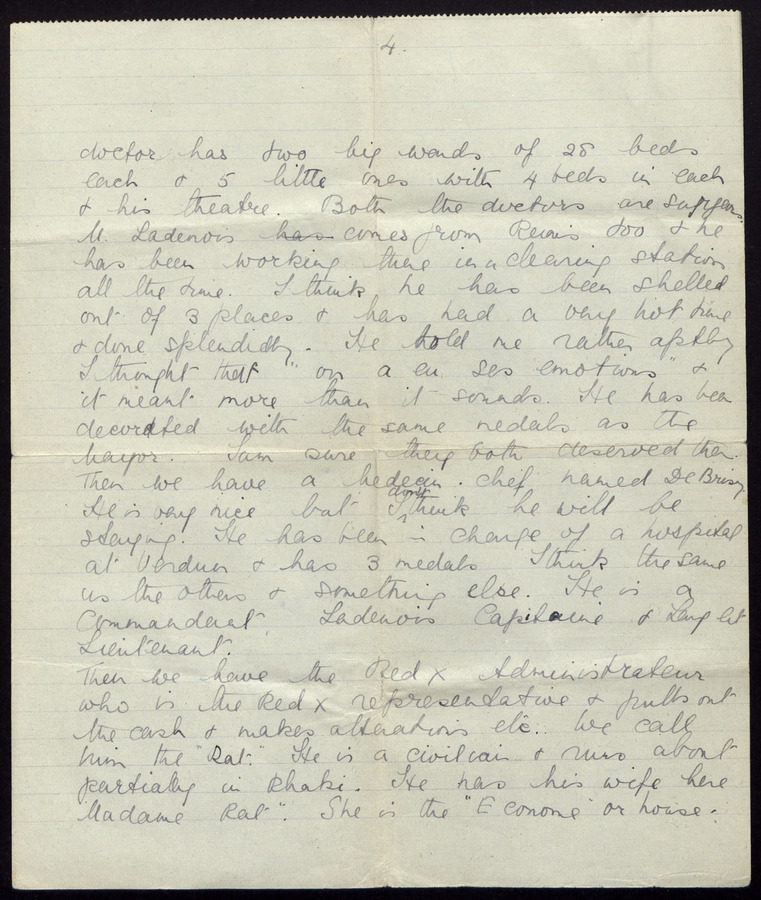 4.
doctor has two big wards of 28 beds
each & 5 little ones with 4 beds in each
& his theatre. Both the doctors are surgeons.
M. Ladenois has comes from Reims too & he
has been working there in a clearing station
all the time. I think he has been shelled
out of 3 places & has had a very hot time
& done splendidly. He told me rather aptly
I thought that "on a eu ses emotions" &
it meant more than it sounds. He has been
decorated with the same medals as the
Mayor. I am sure they both deserved them.
Then we have a Medecin. chef named De Brisy
He is very nice but I dont think he will be
staying. He has been in charge of a hospital
at Verdun & has 3 medals I think the same
as the others & something else. He is a
Commandant, Ladenois Capitaine & Lieut
Lieutenant.
Then we have the Red X Administrateur
who is the Red X representative & pulls out
the cash & makes alterations etc. We call
him the "Rat." He is a civilian & runs about
partially in Khaki. He has his wife here
Madame Rat". She is the "Econome" or house-